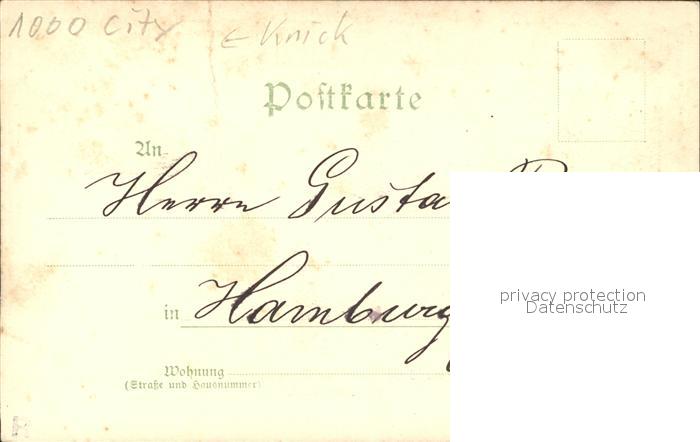 1000 City ← Knick
Postkarte
An
Herrn Gusta
privacy protection
Datenschutz
in Hamburg
Wohnung
(Straße und Hausnummer)